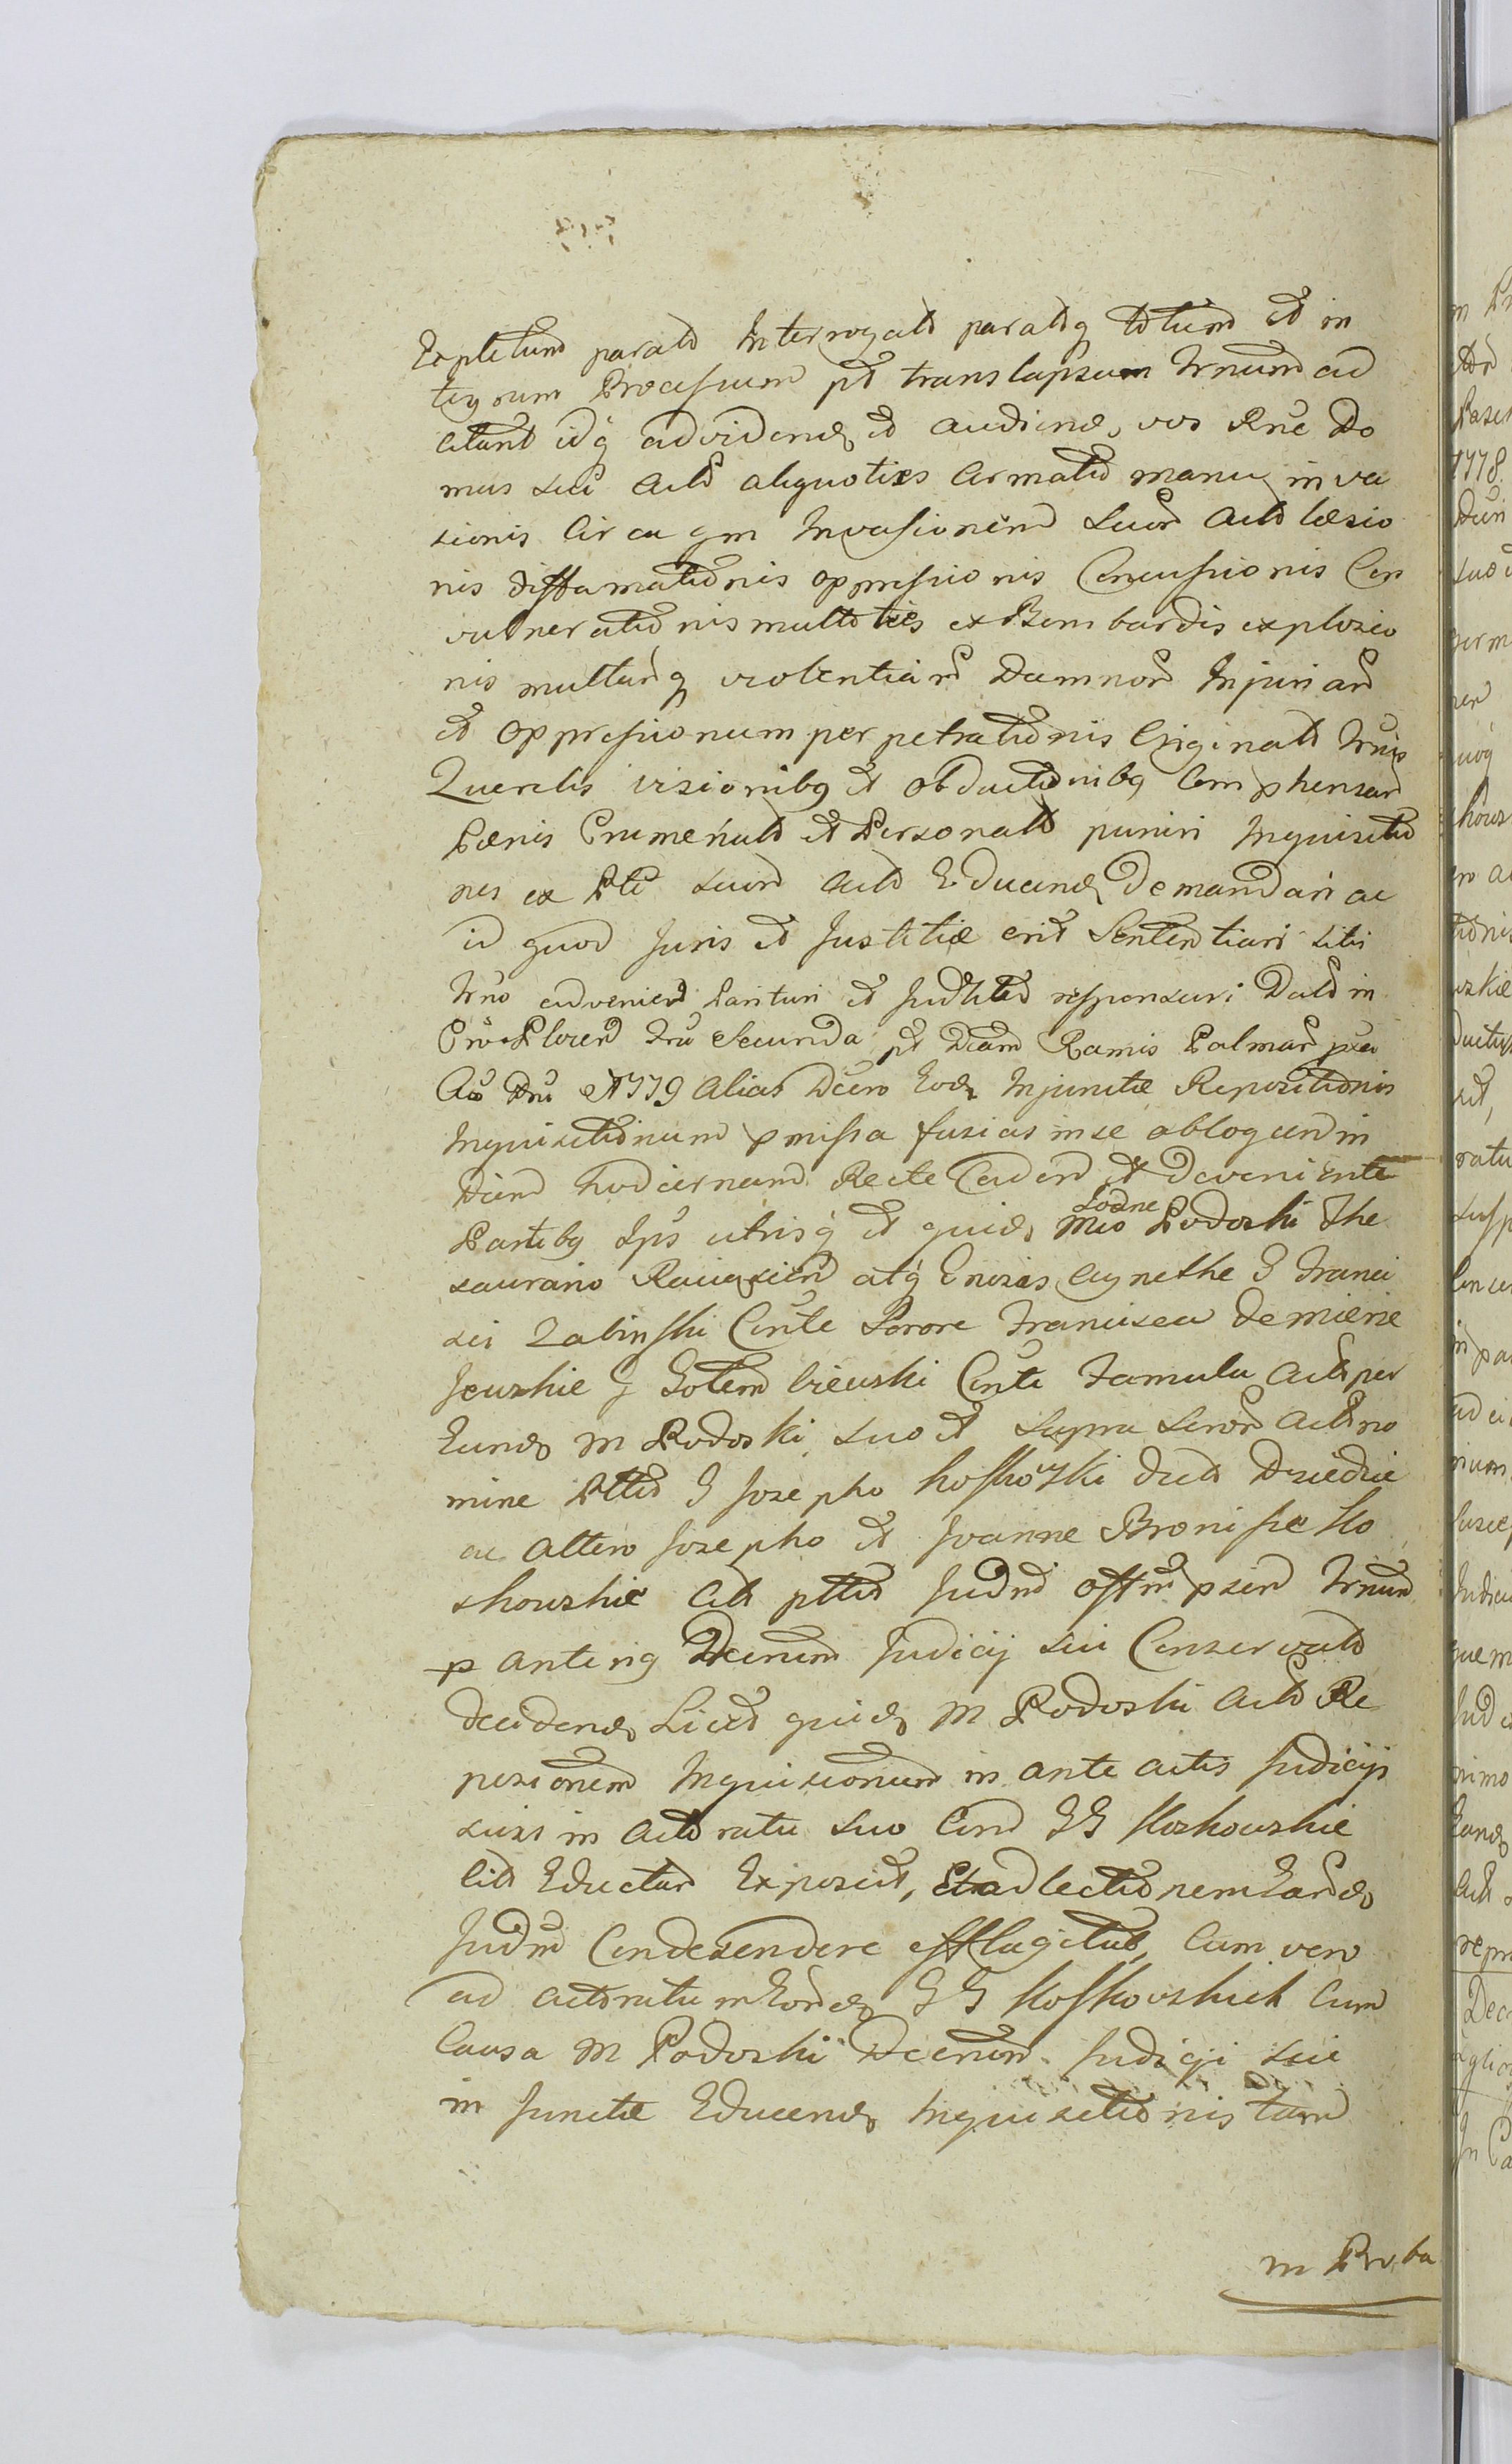 Expletum parato Interrogato paratoq totum et in
tegrum Processum pt translapsum Trnum ad
citant idq ad vidend et audiend, vos Rne Do
mus sui Acto aliquoties armato manu inva
sionis Circa qm Invasionem suor Acto læsio
nis diffamationis oppressionis Concussionis Con
vulnerationis multoties ex Bombardis explosio
nis multarq violentiar Damnor Injuriar
et oppressionum perpetrationis Originalo Trnis
Querelis visionibq et obductionibq Comphensar
Pænis Crimenalo et Personalo puniri Inquisitio
nes ex Pte suor Acto Educend Demandari ac
id quod Juris et Justitiæ erit Sententiari sitis
Trno advenien Parituri et Judlito responsuri Dato in
Crō Plocen fra Secunda pt Dcam Ramis Palmar pxa
Ao Dni 1779 alias Dcero Eod Injunctæ Repositionis
Inquisitionum pmissa fusias in se abloquen in
Diem hodiernam Recte Caden et Devenienté
Partibq Ips utrisq et quid Mco Iosne Podoski The
saurario Raviascien atq Gnosis Agnethe G Franci
sci Zabinski Conte Sorore Francisca Demienie
jewskie G Gotembiewski Conte Famula Acto per
Eund M Podoski suo et supra scror Acto no
mine Ptto G Josepho Koskowski dicto Dziedzic
ac altero Josepho et Joanne Bronisse Ko
skowskie Cito ptto Judm ostrm psen Trnum
p anteriq Dcenum Judicij sui Conservato
decidend Licet quid M Podoski Acto Re
posionem Inquisionum in ante actis Judicijs
suis in Actoratu suo Con GG Koskowskie
Cito Eductar Exposcit, Et ad lectionem Eard
Judm Condesendere efflagitat, Cum vero
ad actoratum Eord GG Koskowskich Cum
Causa M Podoski Dcenum Judicji sui
in Junctæ Educend Inquisitionis tam
m Proba